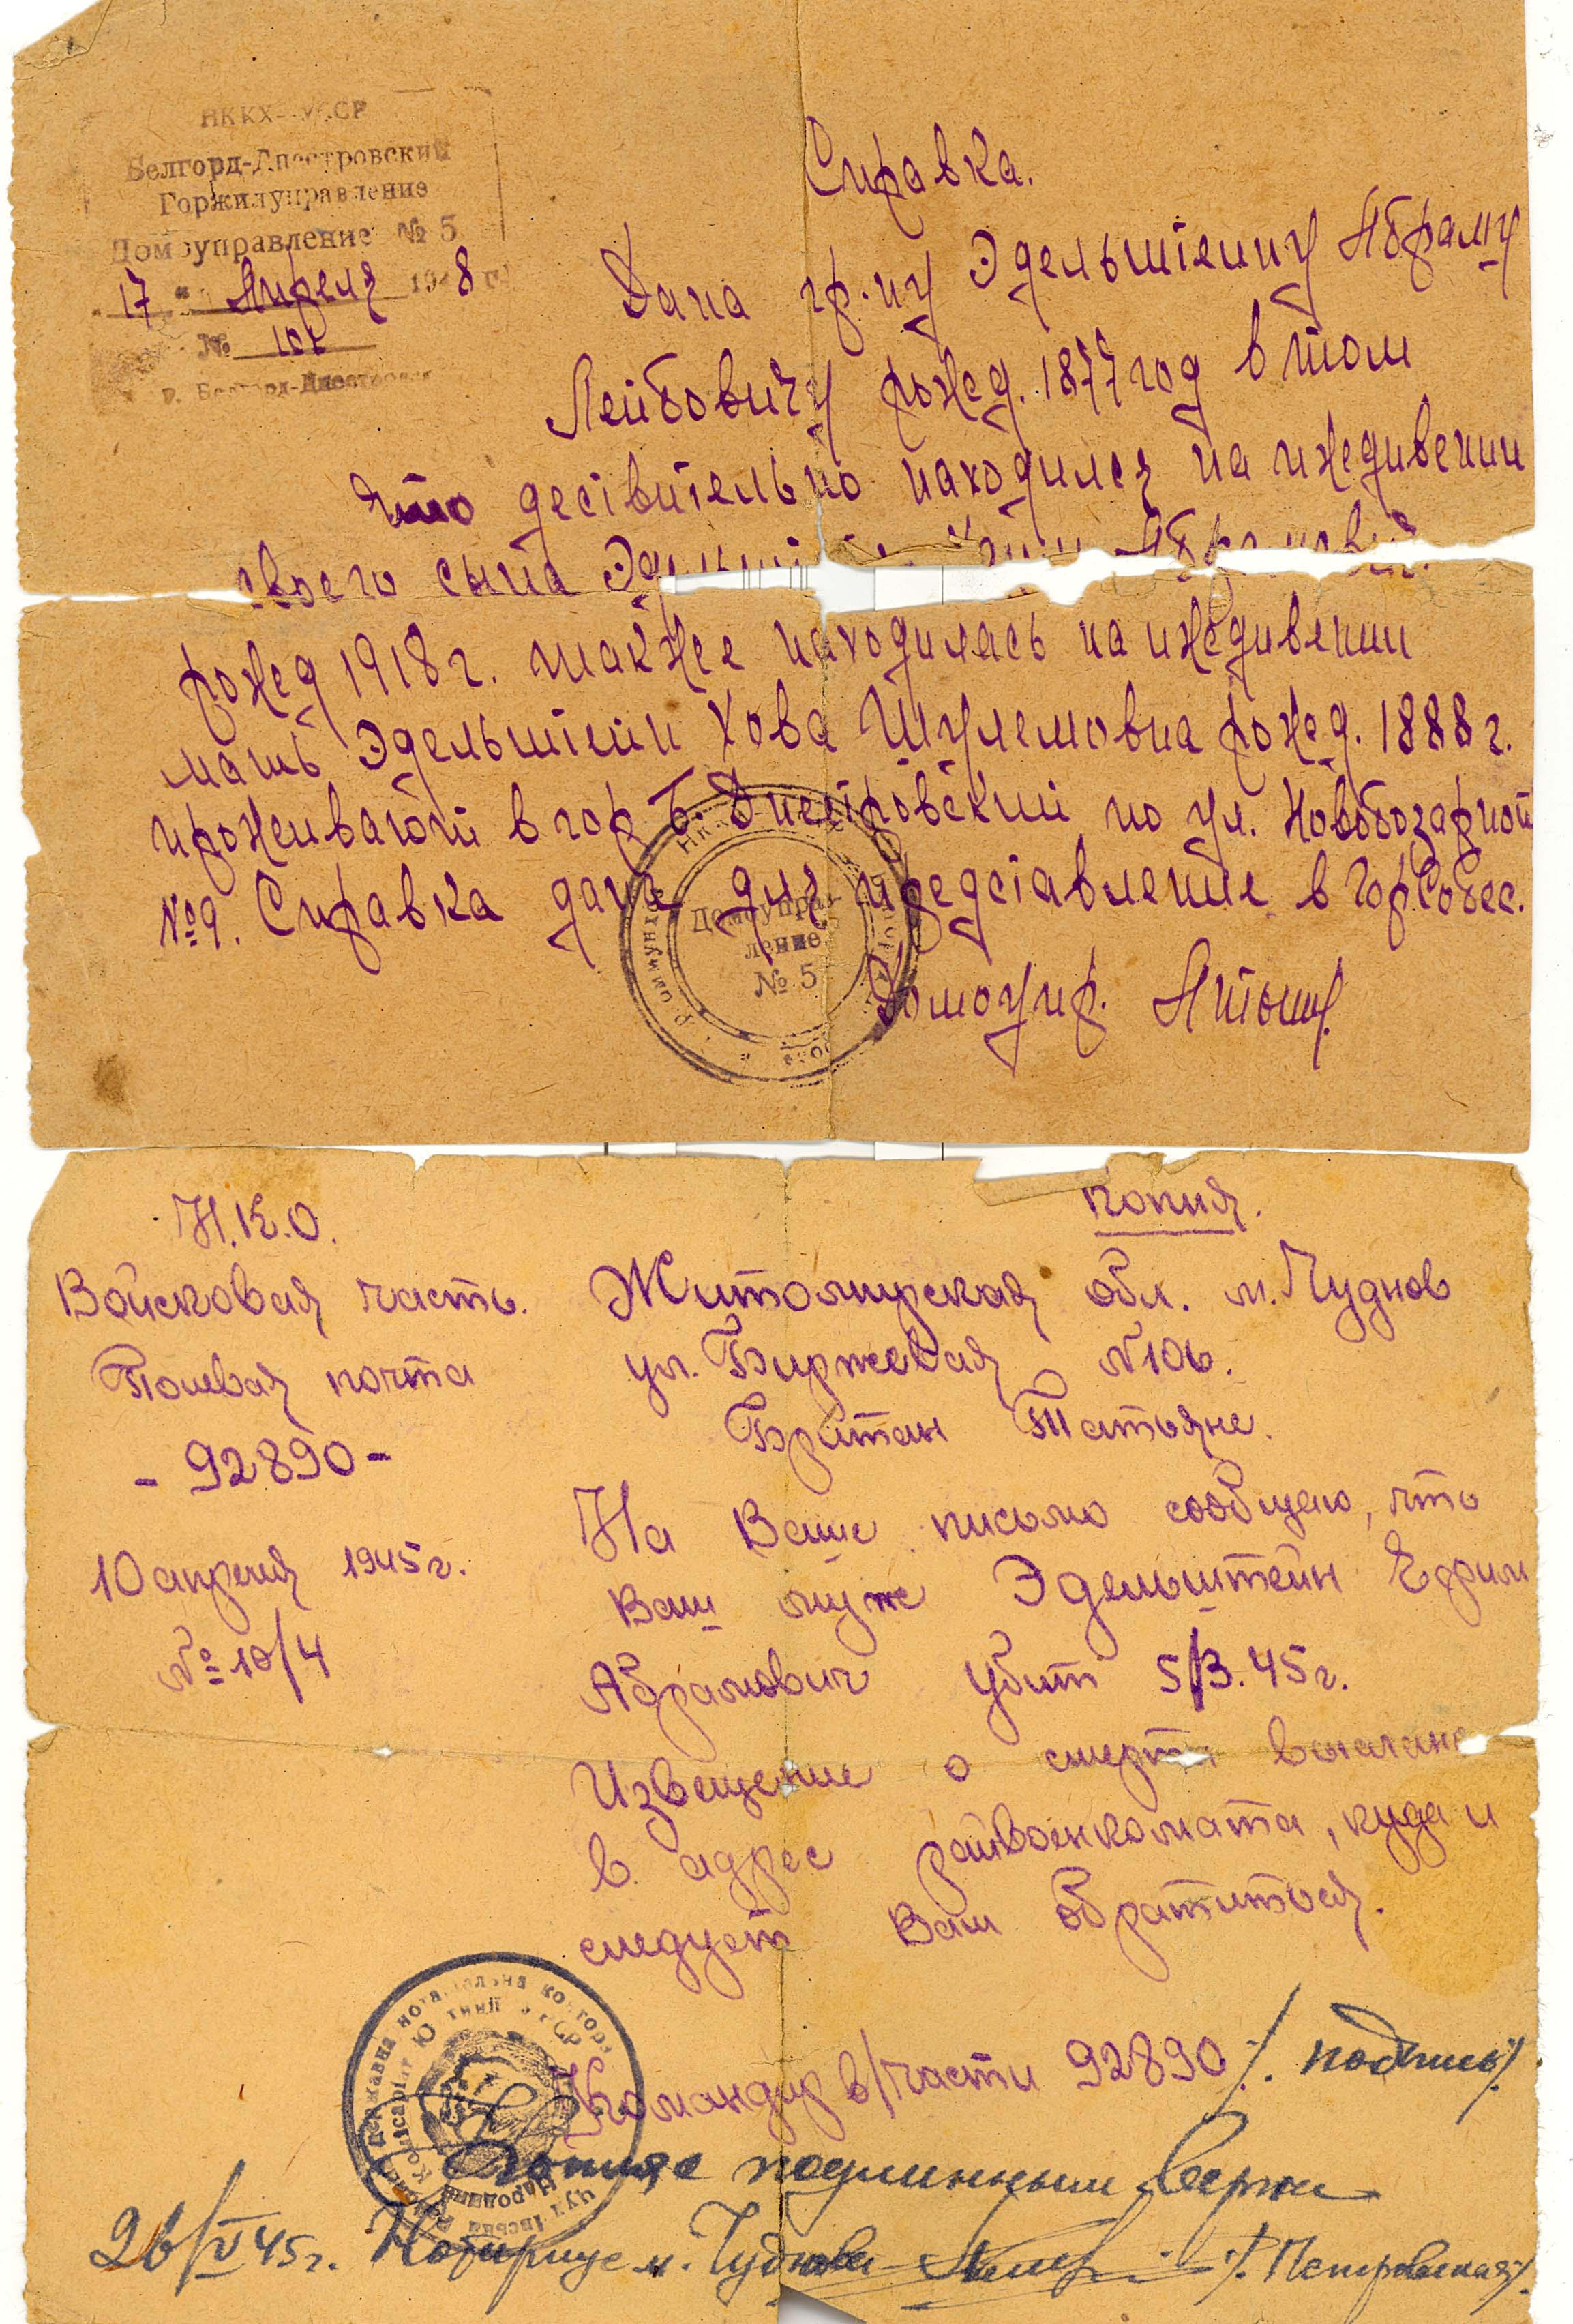 НККХ-УССР
Белгорд-Днестровский
Горжилуправление
Домоуправление № 5
17 " Апреля 1948 г.
№ 102
Справка.
Дана гр.ну Эдельштейну Абраму
Лейбовичу рожд. 1877 год в том
что дествительно находился на иждивении
своего сына Абрамович
рожед 1918 г. также находилась на иждивении
мать Эдельштейн Хова Шулемовна рожед. 1888 г.
проживают в гор Б. Днестровский по ул. Новобозарной
№ 9. Справка дана для представление в ГорСобес.
Домоупр.
Домоуправ-
ление
№ 5
Копия.
Н.К.О.
Войсковая часть.
Полевая почта
- 92890 -
10 апреля 1945 г.
№ 10/4
Житомирская обл. м. Чуднов
ул. Биржевая №106.
Британ Татьяне.
На Ваше письмо сообщаю, что
Ваш муж Эдельштейн Ефим
Абрамович убит 5/3.45 г.
Извещение о смерти выслано
в адрес райвоенкомата, куда и
следует Вам обратиться.
Командир в/части 92890 /. подпись/.
Копия с подлинным верна
26/V 45 г. Нотариус м. Чуднова /. Петровская/.
державна нотаріальна контора
Народний Комісаріат Юстиції УРСР